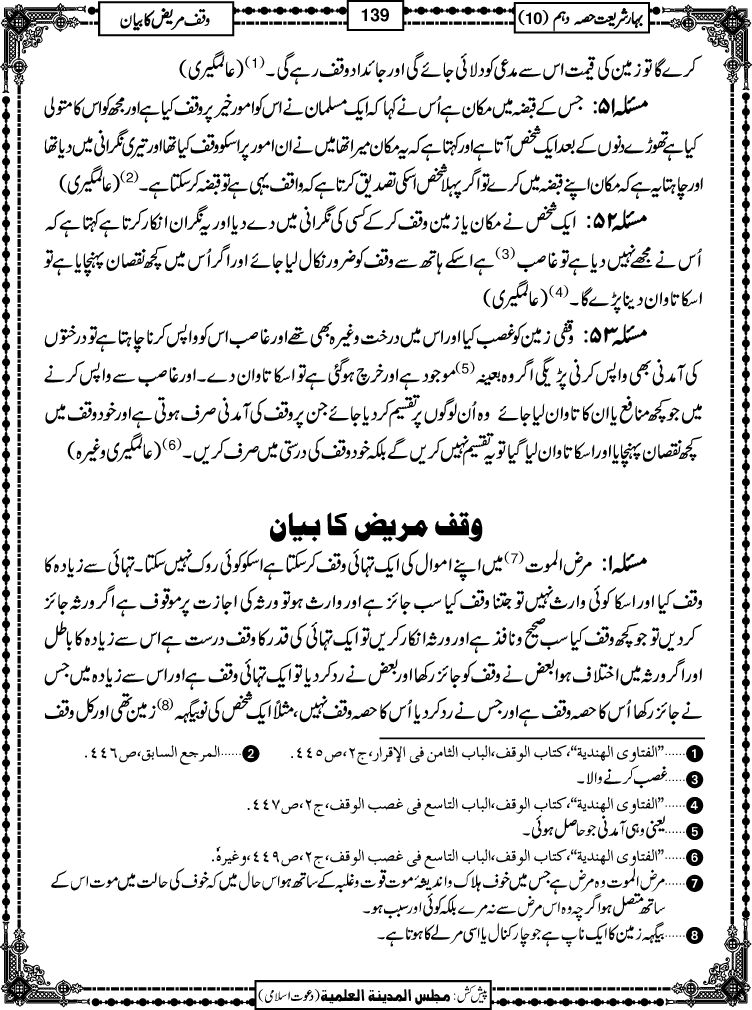 بہارِ شریعت حصہ دہم (10)
139
وقف مریض کا بیان
کرے گا تو زمین کی قیمت اس سے مدعی کو دلائی جائے گی اور جائداد وقف رہے گی۔(1) (عالمگیری)
مسئلہ ۵۱: جس کے قبضہ میں مکان ہے اُس نے کہا کہ ایک مسلمان نے اس کو امورِ خیر پر وقف کیا ہے اور مجھ کو اس کا متولی
کیا ہے تھوڑے دنوں کے بعد ایک شخص آتا ہے اور کہتا ہے کہ یہ مکان میرا تھا میں نے ان امور پر اسکو وقف کیا تھا اور تیری نگرانی میں دیا تھا
اور چاہتا یہ ہے کہ مکان اپنے قبضہ میں کرے تو اگر پہلا شخص اسکی تصدیق کرتا ہے کہ واقف یہی ہے تو قبضہ کرسکتا ہے۔(2) (عالمگیری)
مسئلہ ۵۲: ایک شخص نے مکان یا زمین وقف کرکے کسی کی نگرانی میں دے دیا اور یہ نگران انکار کرتا ہے کہتا ہے کہ
اُس نے مجھے نہیں دیا ہے تو غاصب(3) ہے اسکے ہاتھ سے وقف کو ضرور نکال لیا جائے اور اگر اُس میں کچھ نقصان پہنچایا ہے تو
اسکا تاوان دینا پڑے گا۔(4) (عالمگیری)
مسئلہ ۵۳: وقفی زمین کو غصب کیا اور اس میں درخت وغیرہ بھی تھے اور غاصب اس کو واپس کرنا چاہتا ہے تو درختوں
کی آمدنی بھی واپس کرنی پڑیگی اگر وہ بعینہ(5) موجود ہے اور خرچ ہوگئی ہے تو اسکا تاوان دے۔ اور غاصب سے واپس کرنے
میں جو کچھ منافع یا ان کا تاوان لیا جائے وہ اُن لوگوں پر تقسیم کردیا جائے جن پر وقف کی آمدنی صرف ہوتی ہے اور خود وقف میں
کچھ نقصان پہنچایا اور اسکا تاوان لیا گیا تو یہ تقسیم نہیں کریں گے بلکہ خود وقف کی درستی میں صرف کریں۔(6) (عالمگیری وغیرہ)
وقف مریض کا بیان
مسئلہ ۱: مرض الموت(7) میں اپنے اموال کی ایک تہائی وقف کرسکتا ہے اسکو کوئی روک نہیں سکتا۔ تہائی سے زیادہ کا
وقف کیا اور اسکا کوئی وارث نہیں تو جتنا وقف کیا سب جائز ہے اور وارث ہو تو ورثہ کی اجازت پر موقوف ہے اگر ورثہ جائز
کردیں تو جو کچھ وقف کیا سب صحیح و نافذ ہے اور ورثہ انکار کریں تو ایک تہائی کی قدر کا وقف درست ہے اس سے زیادہ کا باطل
اور اگر ورثہ میں اختلاف ہوا بعض نے وقف کو جائز رکھا اور بعض نے رد کردیا تو ایک تہائی وقف ہے اور اس سے زیادہ میں جس
نے جائز رکھا اُس کا حصہ وقف ہے اور جس نے رد کردیا اُس کا حصہ وقف نہیں، مثلاً ایک شخص کی نو بیگہہ(8) زمین تھی اور کل وقف
1 ......"الفتاوی الھندیة"، کتاب الوقف، الباب الثامن فی الإقرار، ج۲، ص۴۴۵. 2 ......المرجع السابق، ص۴۴۶.
3 ......غصب کرنے والا۔
4 ......"الفتاوی الھندیة"، کتاب الوقف، الباب التاسع فی غصب الوقف، ج۲، ص۴۴۷.
5 ......یعنی وہی آمدنی جو حاصل ہوئی۔
6 ......"الفتاوی الھندیة"، کتاب الوقف، الباب التاسع فی غصب الوقف، ج۲، ص۴۴۹، وغیرہٗ.
7 ......مرض الموت وہ مرض ہے جس میں خوف ہلاک و اندیشۂ موت قوت و غلبہ کے ساتھ ہو اس حال میں کہ خوف کی حالت میں موت اس کے
ساتھ متصل ہو اگرچہ وہ اس مرض سے نہ مرے بلکہ کوئی اور سبب ہو۔
8 ......بیگہہ زمین کا ایک ناپ ہے جو چار کنال یا اسی مرلے کا ہوتا ہے۔
پیش کش: مجلس المدینة العلمیة (دعوت اسلامی)